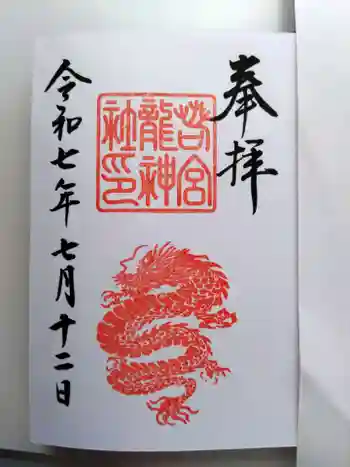 奉拝
宮龍神社印
令和七年七月十二日